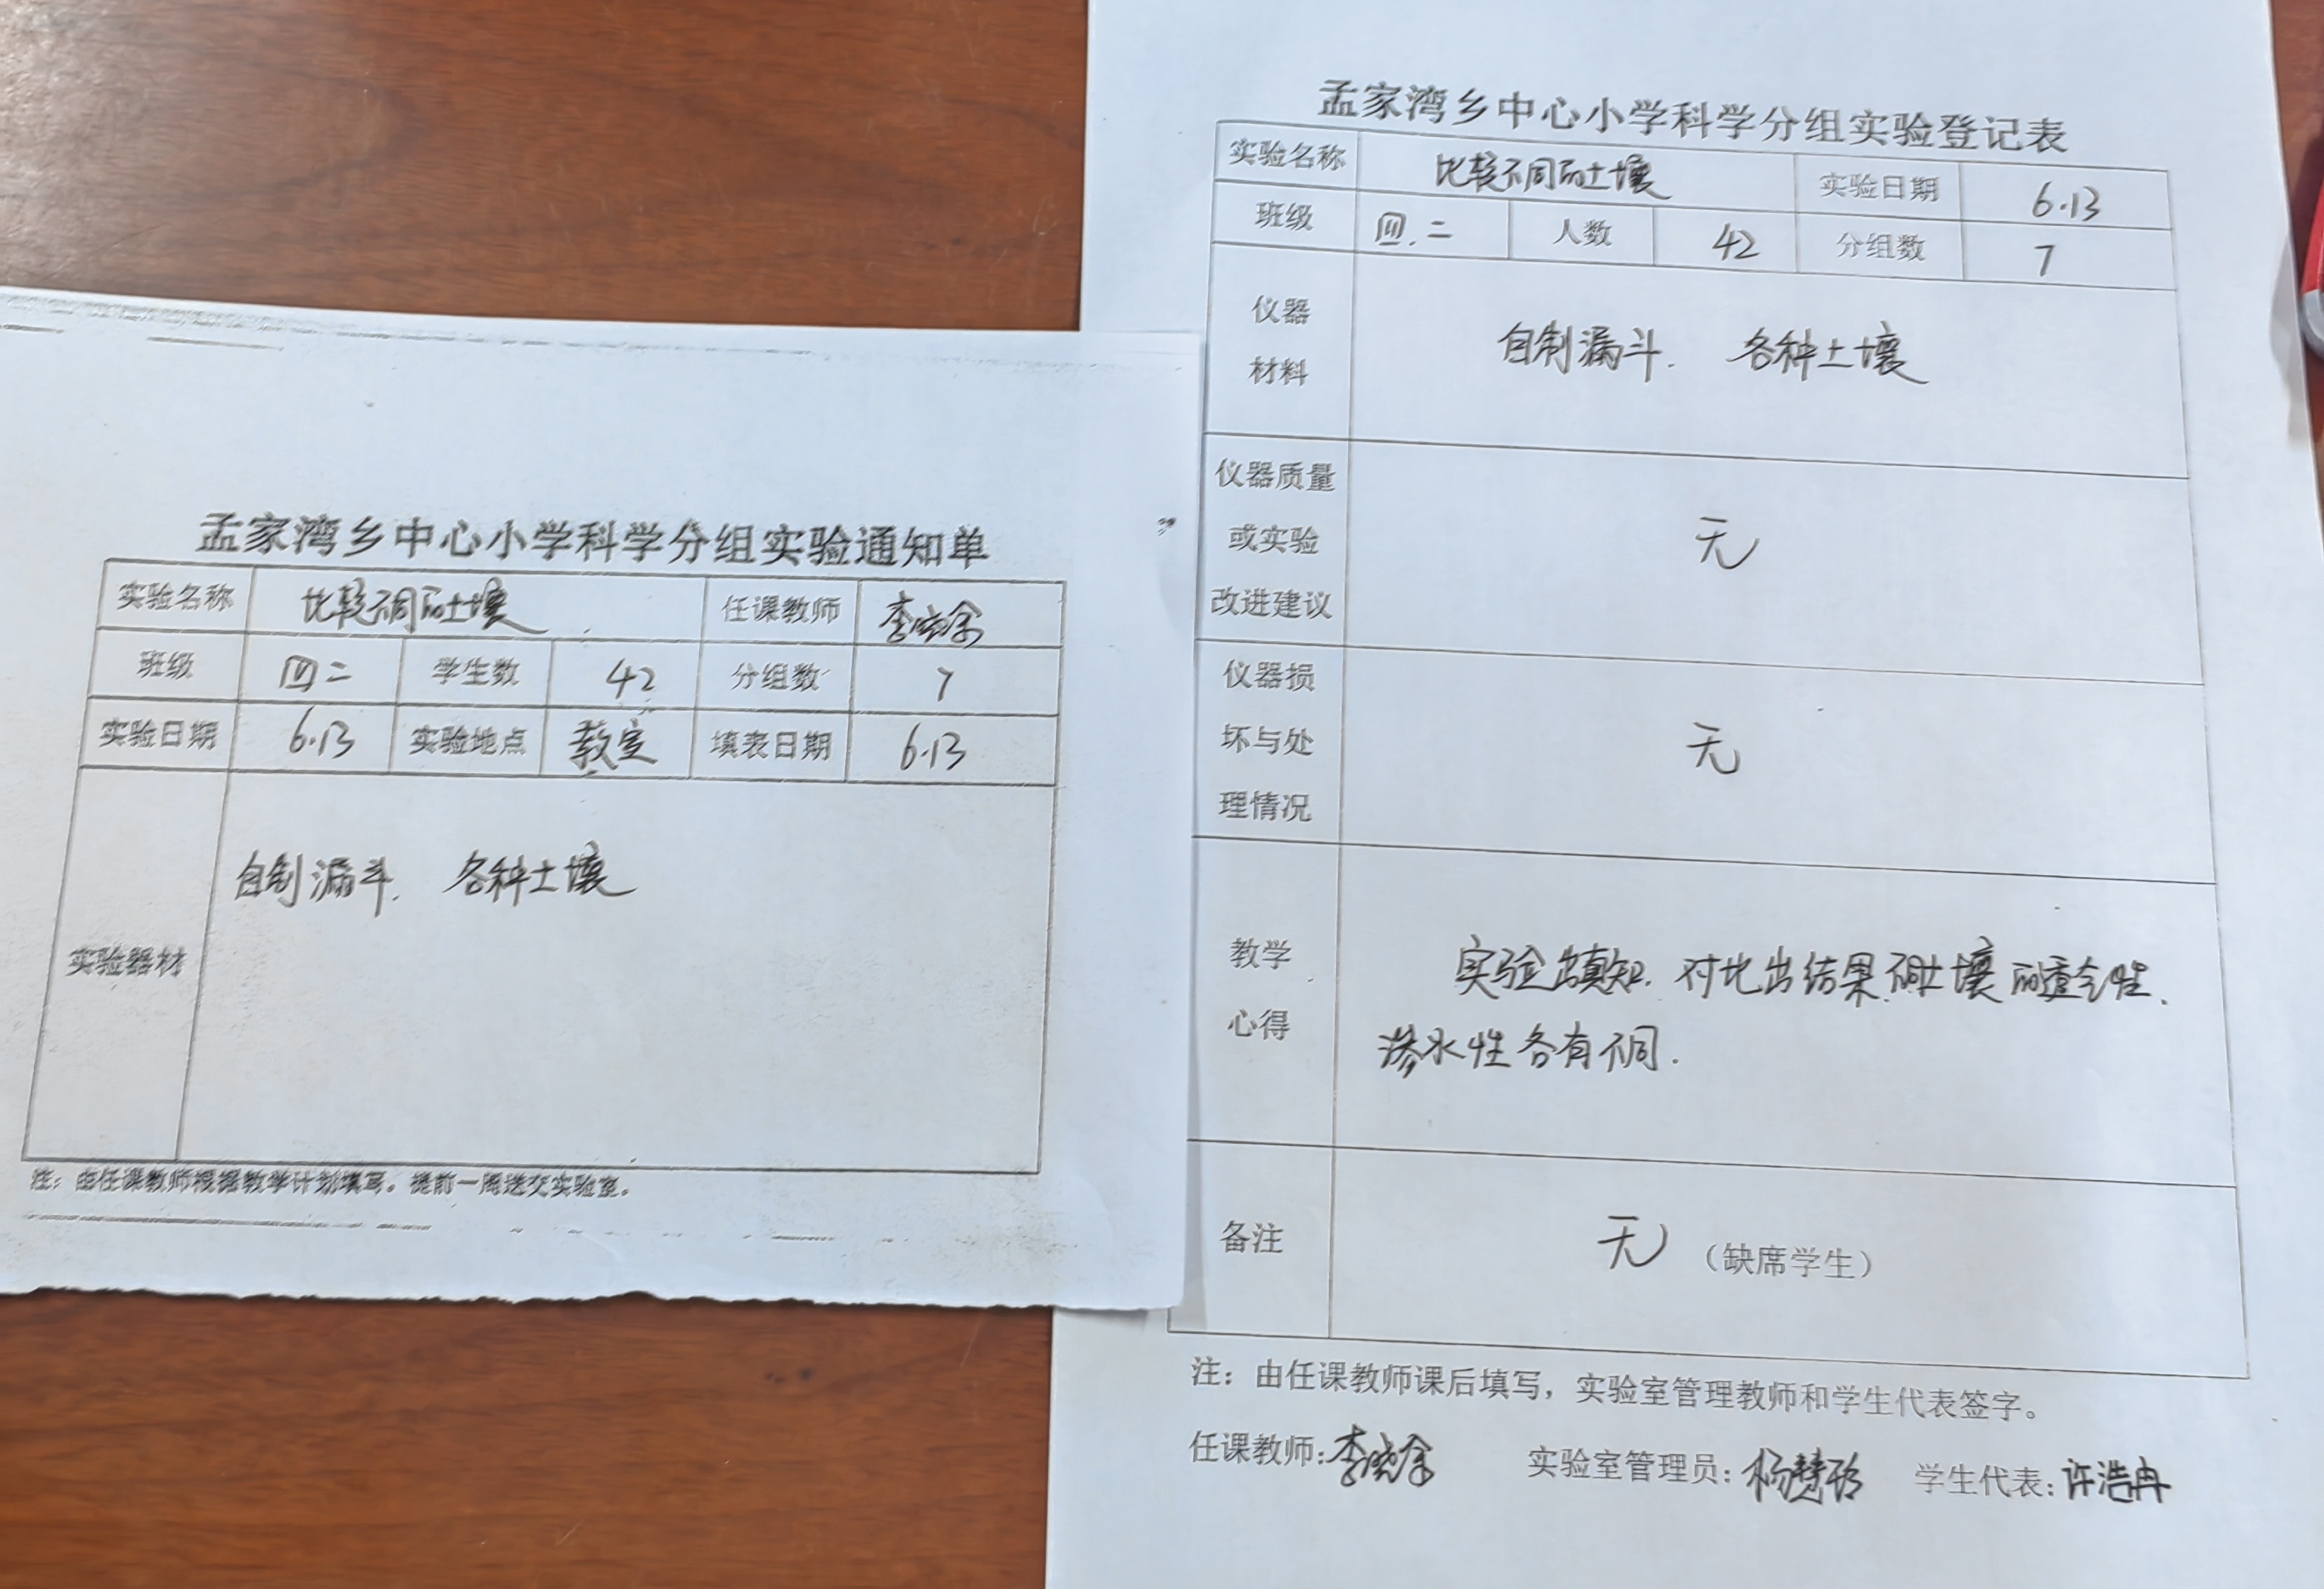 孟家湾乡中心小学科学分组实验通知单
实验名称 比较不同的土壤 任课教师
班级 四二 学生数 42 分组数 7
实验日期 6.13 实验地点 教室 填表日期 6.13
实验器材 自制漏斗. 各种土壤
注：由任课教师根据教学计划填写。提前一周送交实验室。
孟家湾乡中心小学科学分组实验登记表
实验名称 比较不同的土壤 实验日期 6.13
班级 四.二 人数 42 分组数 7
仪器
材料
自制漏斗. 各种土壤
仪器质量
或实验
改进建议
无
仪器损
坏与处
理情况
无
教学
心得
实验出真知. 对比出结果.不同土壤的
渗水性各有不同.
备注 无（缺席学生）
注：由任课教师课后填写，实验室管理教师和学生代表签字。
任课教师: 实验室管理员: 杨慧玲 学生代表: 许浩冉